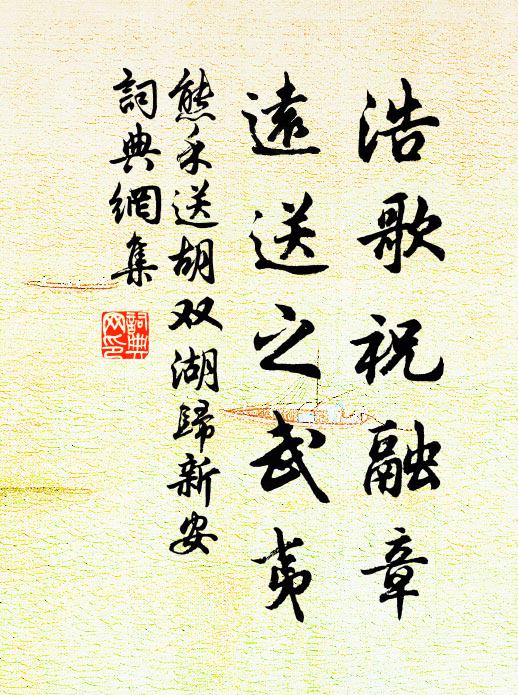 浩歌祝融章
遠送之武夷
熊禾送胡双湖歸新安
詞典網集
詞典網印